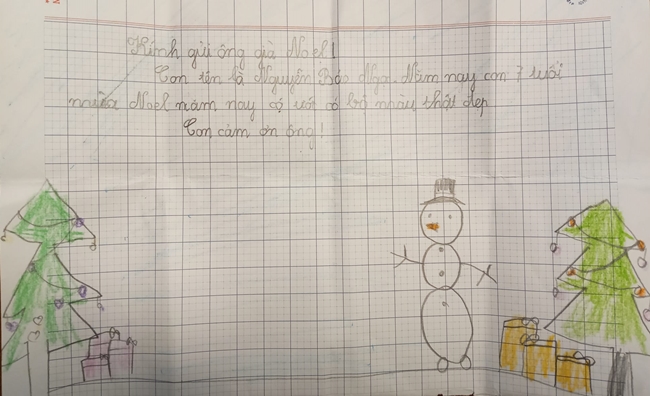 Kính gửi ông già Noel!
Con tên là Nguyễn Bảo Nga. Năm nay con 7 tuổi
mùa Noel năm nay cọ ước có bộ nháy thật đẹp
Con cảm ơn ông!